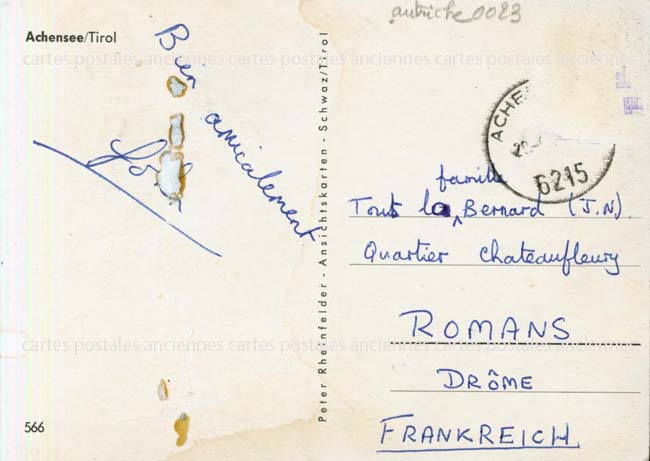 autriche0023
Achensee/Tirol
Bien amicalement
Peter Rheinfelder - Ansichtskarten - Schwaz/Tirol
ACHE
6215
famille
Tout la Bernard (J.N).
Quartier Chateaufleury
ROMANS
DRÔME
FRANKREICH
566
cartes postales anciennes cartes postales anciennes cartes postales anciennes
cartes postales anciennes cartes postales anciennes cartes postales anciennes